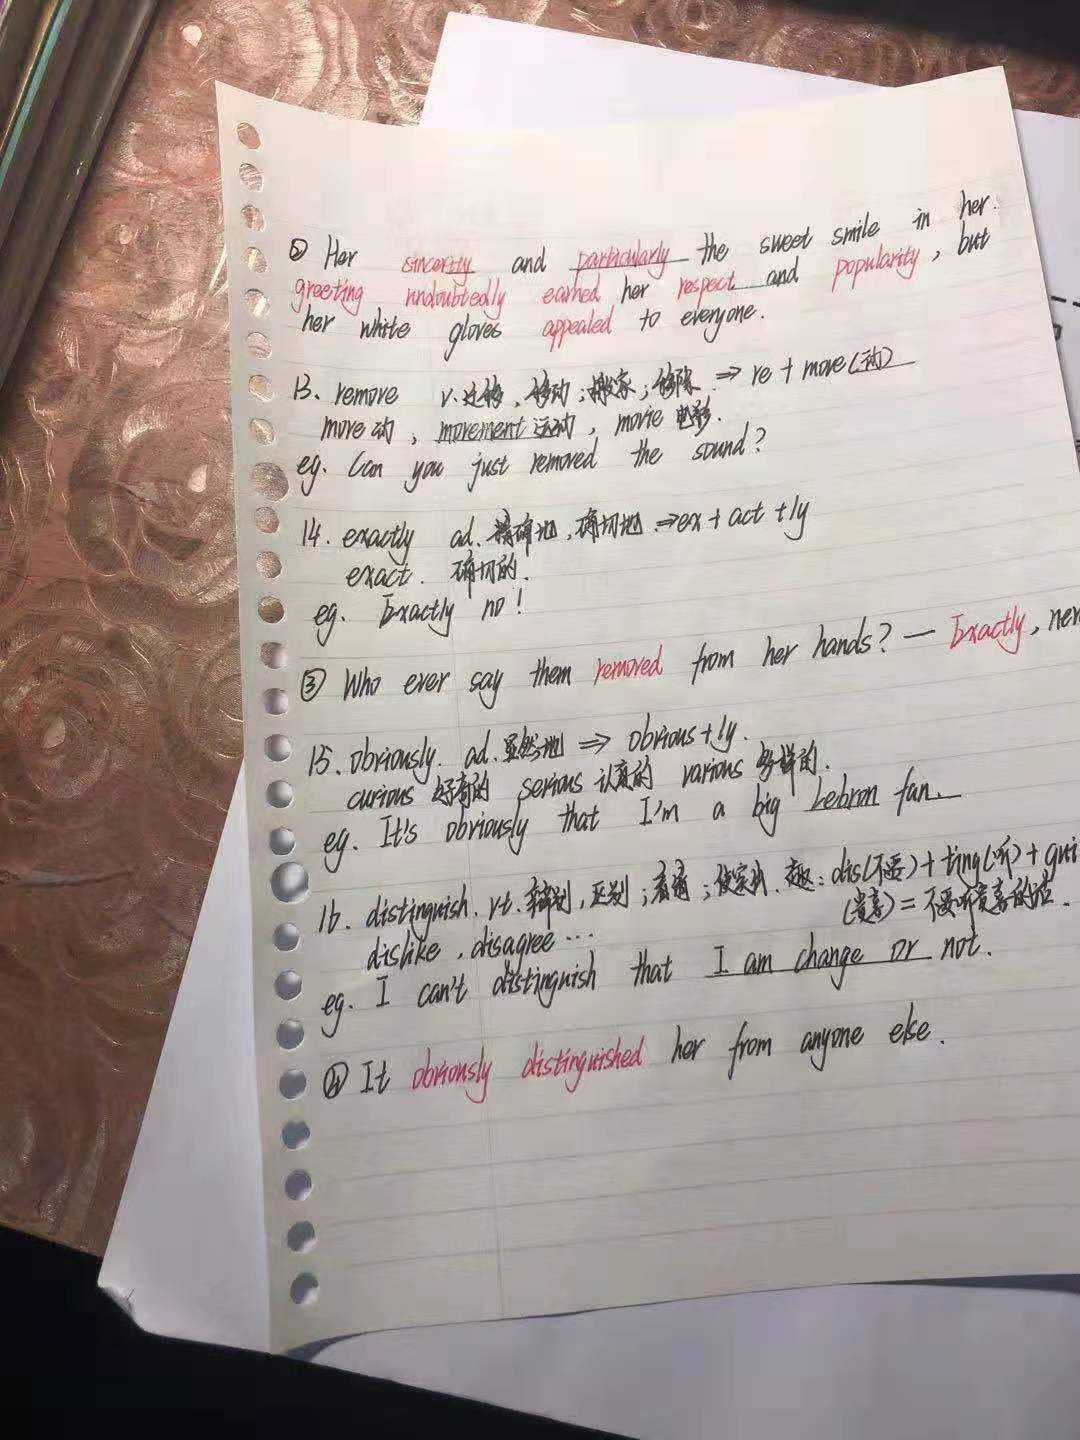 ② Her sincerity and particularly the sweet smile in her
greeting undoubtedly earned her respect and popularity, but
her white gloves appealed to everyone.
13. remove v. 迁移、移动；搬家；移除 ⇒ re + move(动)
move 动, movement 运动, movie 电影.
eg. Can you just removed the sound?
14. exactly ad. 精确地,确切地 ⇒ ex + act + ly
exact. 确切的.
eg. Exactly no!
③ Who ever say them removed from her hands? — Exactly,
15. obviously. ad. 显然地 ⇒ obvious + ly.
curious 好奇的 serious 认真的 various 多样的.
eg. It's obviously that I'm a big Lebron fan.
16. distinguish. vt. 辨别,区别；看清；使突出. 趣: dis(不要) + ting(听) + gui
(贵宾) = 不要听贵宾的话.
dislike, disagree ...
eg. I can't distinguish that I am change or not.
④ It obviously distinguished her from anyone else.